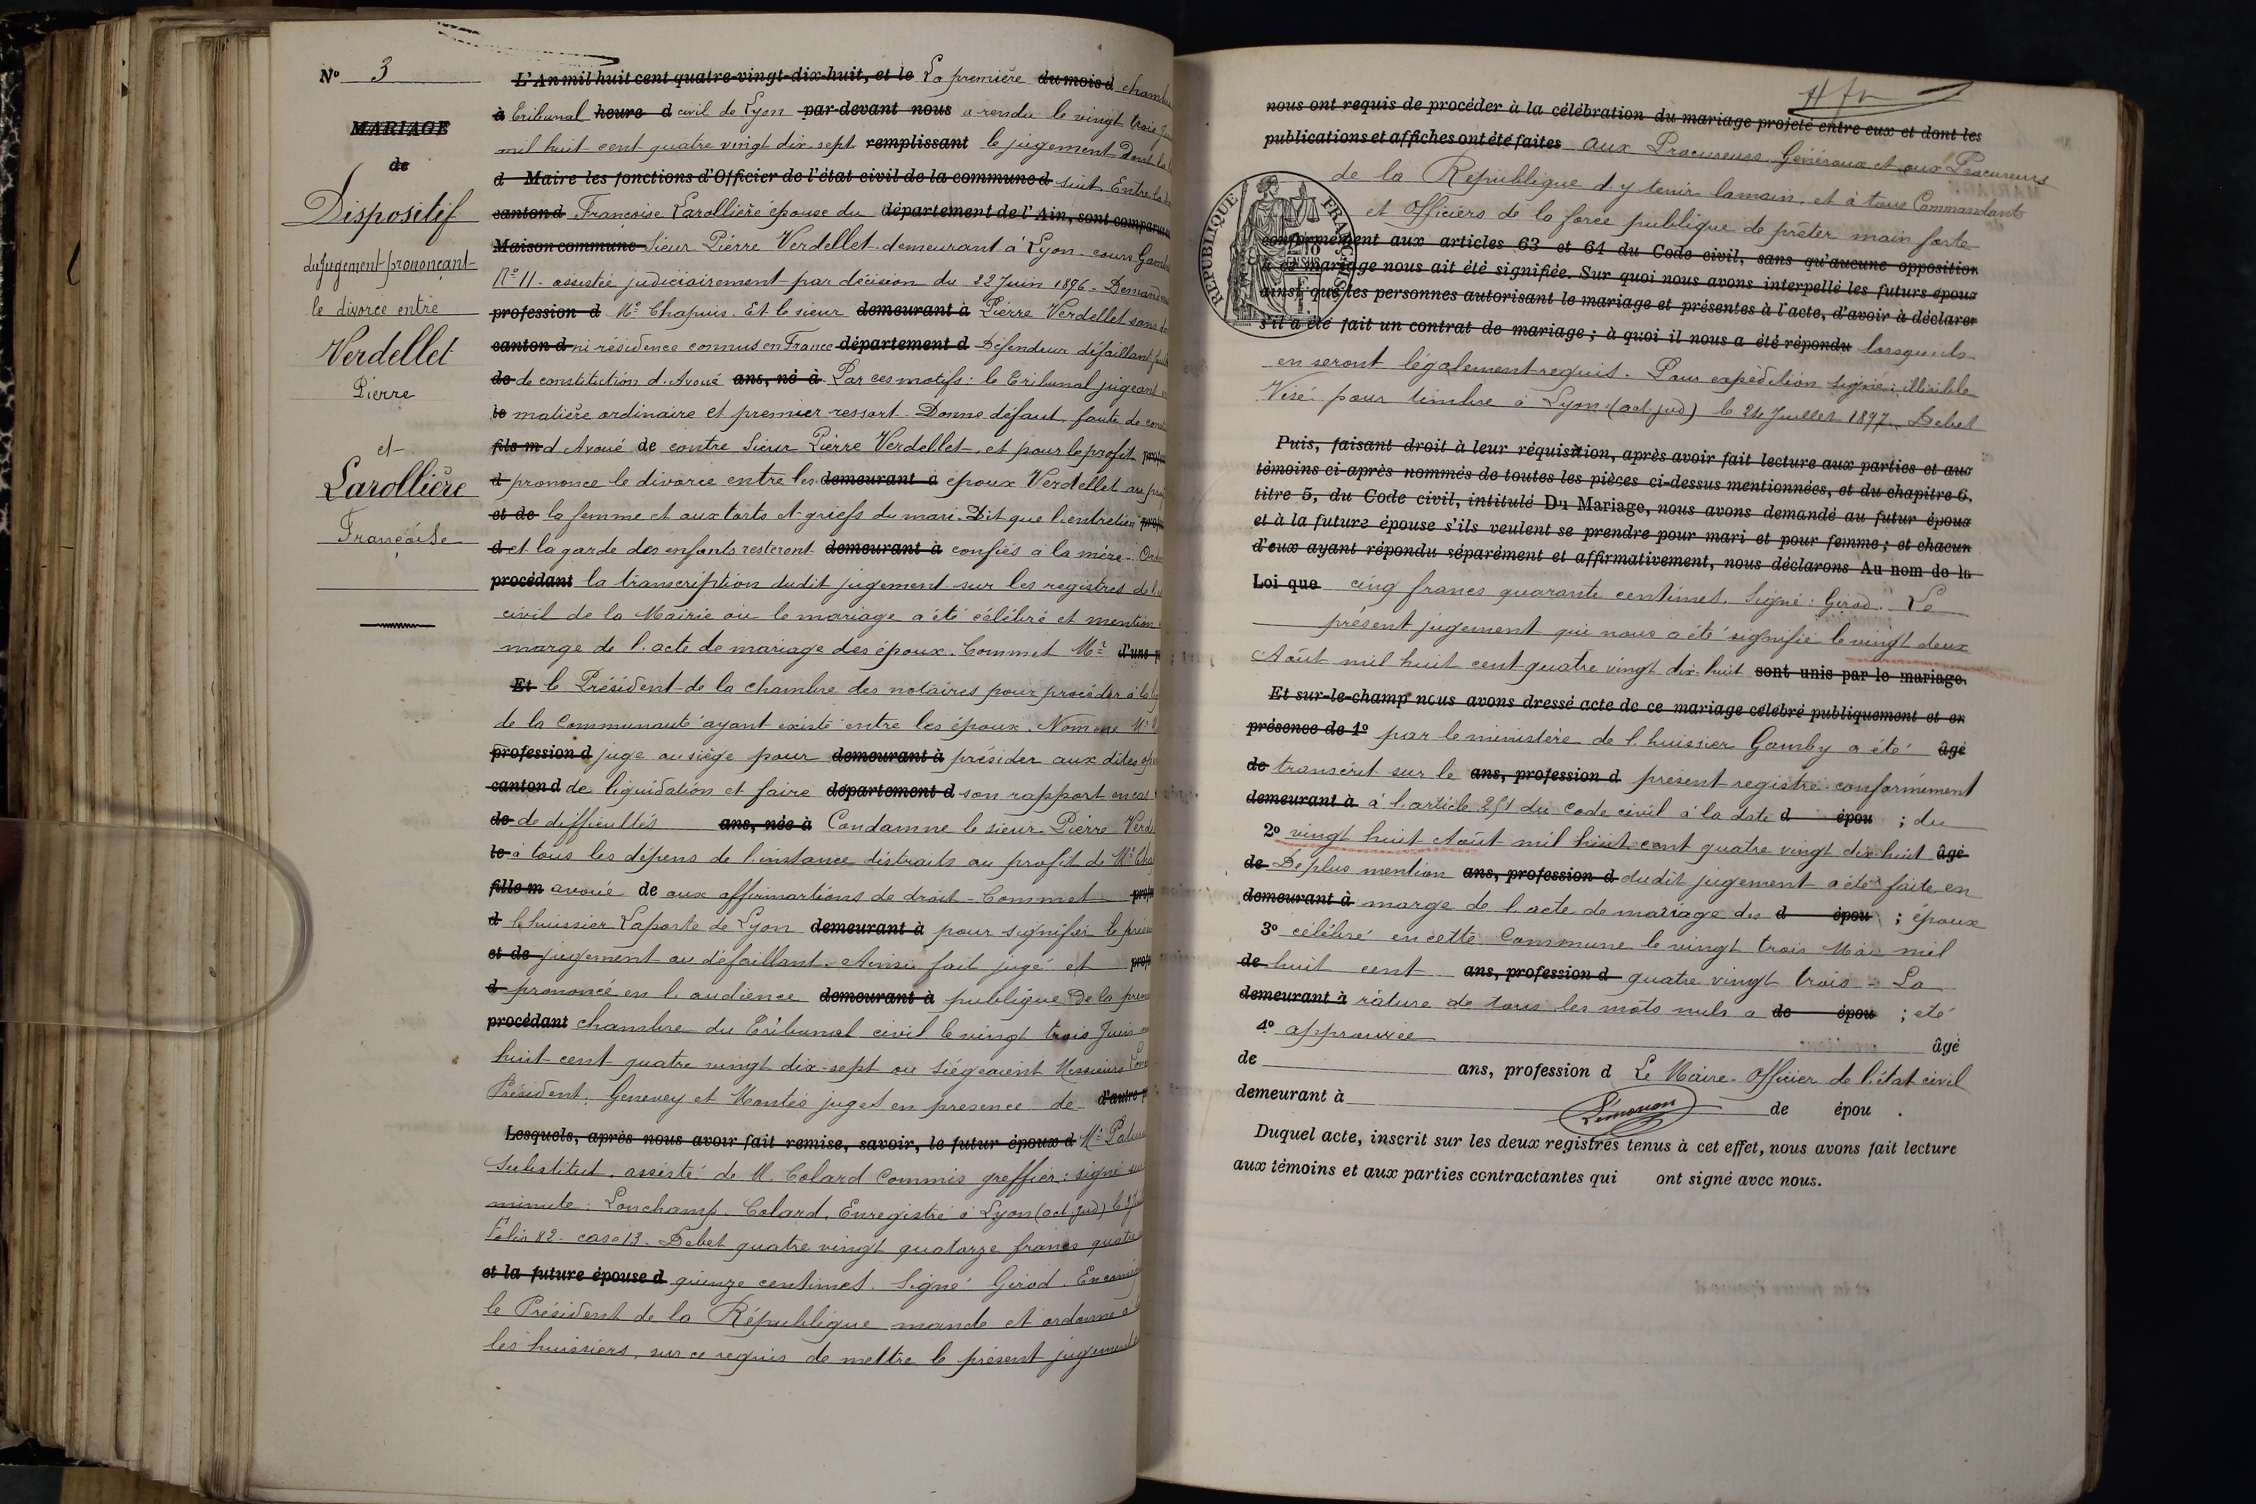 No 3
MARIAGE
de
Dispositif
du jugement prononçant
le divorce entre
Verdellet
Pierre
et
Larollière
Françoise
L'An mil huit cent quatre-vingt-dix-huit, et le La première du mois d chambre
à Tribunal heure d civil de Lyon par-devant nous a rendu le vingt trois
mil huit cent quatre vingt dix sept remplissant le jugement Dont la
d Maire les fonctions d'Officier de l'état civil de la commune d suit Entre la
canton d Françoise Larollière épouse du département de l'Ain, sont comparus
Maison commune Sieur Pierre Verdellet demeurant à Lyon cours
No 11 - assistée judiciairement par décision du 22 Juin 1896 -
profession d Me Chapuis. Et le sieur demeurant à Pierre Verdellet sans
canton d ni résidence connus en France département d Défendeur défaillant
de de constitution d'Avoué ans, né à Par ces motifs: le Tribunal jugeant
le matière ordinaire et premier ressort. Donne défaut, faute de
fils m d'Avoué de contre Sieur Pierre Verdellet, et pour le profit
d prononce le divorce entre les demeurant à époux Verdellet au
et de la femme et aux torts et griefs du mari. Dit que l'entretien
d et la garde des enfants resteront demeurant à confiés à la mère.
procédant la transcription dudit jugement sur les registres de
civil de la Mairie où le mariage a été célébré et mention
marge de l'acte de mariage des époux. Commet Me d'une
Et le Président de la chambre des notaires pour procéder à la
de la Communauté ayant existé entre les époux. Nomme
profession d juge au siège pour demeurant à présider aux dites
canton d de liquidation et faire département d son rapport en cas
de de difficultés ans, née à Condamne le sieur Pierre
le à tous les dépens de l'instance distraits au profit de
fille m avoué de aux affirmations de droit - Commet
d l'huissier Laporte de Lyon demeurant à pour signifier le
et de jugement au défaillant. Ainsi fait jugé et
d prononcé en l'audience demeurant à publique De la
procédant chambre du Tribunal civil le vingt trois Juin
huit cent quatre vingt dix-sept où siégeaient Messieurs
Président, Genevey et Montés juges en présence de d'autre
Lesquels, après nous avoir fait remise, savoir, le futur époux d
Substitut, assisté de M. Colard Commis greffier: signé
minute: Lonchamp. Colard. Enregistré à Lyon (act. jud)
Folio 82 - case 13 - Debet quatre vingt quatorze francs quatre
et la future épouse d quinze centimes. Signé Girod.
le Président de la République mande et ordonne
les huissiers, sur ce requis de mettre le présent jugement
nous ont requis de procéder à la célébration du mariage projeté entre eux et dont les
publications et affiches ont été faites aux Procureurs Généraux et aux Procureurs
de la République d'y tenir la main, et à tous Commandants
et Officiers de la force publique de prêter main forte
RÉPUBLIQUE FRANÇAISE
conformément aux articles 63 et 64 du Code civil, sans qu'aucune opposition
à ce mariage nous ait été signifiée. Sur quoi nous avons interpellé les futurs époux
ainsi que les personnes autorisant le mariage et présentes à l'acte, d'avoir à déclarer
s'il a été fait un contrat de mariage; à quoi il nous a été répondu lorsqu'ils
en seront légalement requis. Pour expédition signé: illisible
Visé pour timbre à Lyon (act. jud) le 24 Juillet 1897. Debet
Puis, faisant droit à leur réquisition, après avoir fait lecture aux parties et aux
témoins ci-après nommés de toutes les pièces ci-dessus mentionnées, et du chapitre 6,
titre 5, du Code civil, intitulé Du Mariage, nous avons demandé au futur époux
et à la future épouse s'ils veulent se prendre pour mari et pour femme; et chacun
d'eux ayant répondu séparément et affirmativement, nous déclarons Au nom de la
Loi que cinq francs quarante centimes. Signé: Girod. Le
présent jugement qui nous a été signifié le vingt deux
Août mil huit cent quatre vingt dix huit sont unis par le mariage.
Et sur-le-champ nous avons dressé acte de ce mariage célébré publiquement et en
présence de 1o par le ministère de l'huissier Gamby a été âgé
de transcrit sur le ans, profession d présent registre conformément
demeurant à à l'article 251 du code civil à la date d épou ; du
2o vingt huit Août mil huit cent quatre vingt dix huit âgé
de De plus mention ans, profession d dudit jugement a été faite en
demeurant à marge de l'acte de mariage des d épou ; époux
3o célébré en cette Commune le vingt trois Mai mil
de huit cent ans, profession d quatre vingt trois - La
demeurant à râture de tous les mots nuls a de épou ; été
4o approuvée âgé
de ans, profession d Le Maire Officier de l'état civil
demeurant à de épou .
Duquel acte, inscrit sur les deux registres tenus à cet effet, nous avons fait lecture
aux témoins et aux parties contractantes qui ont signé avec nous.